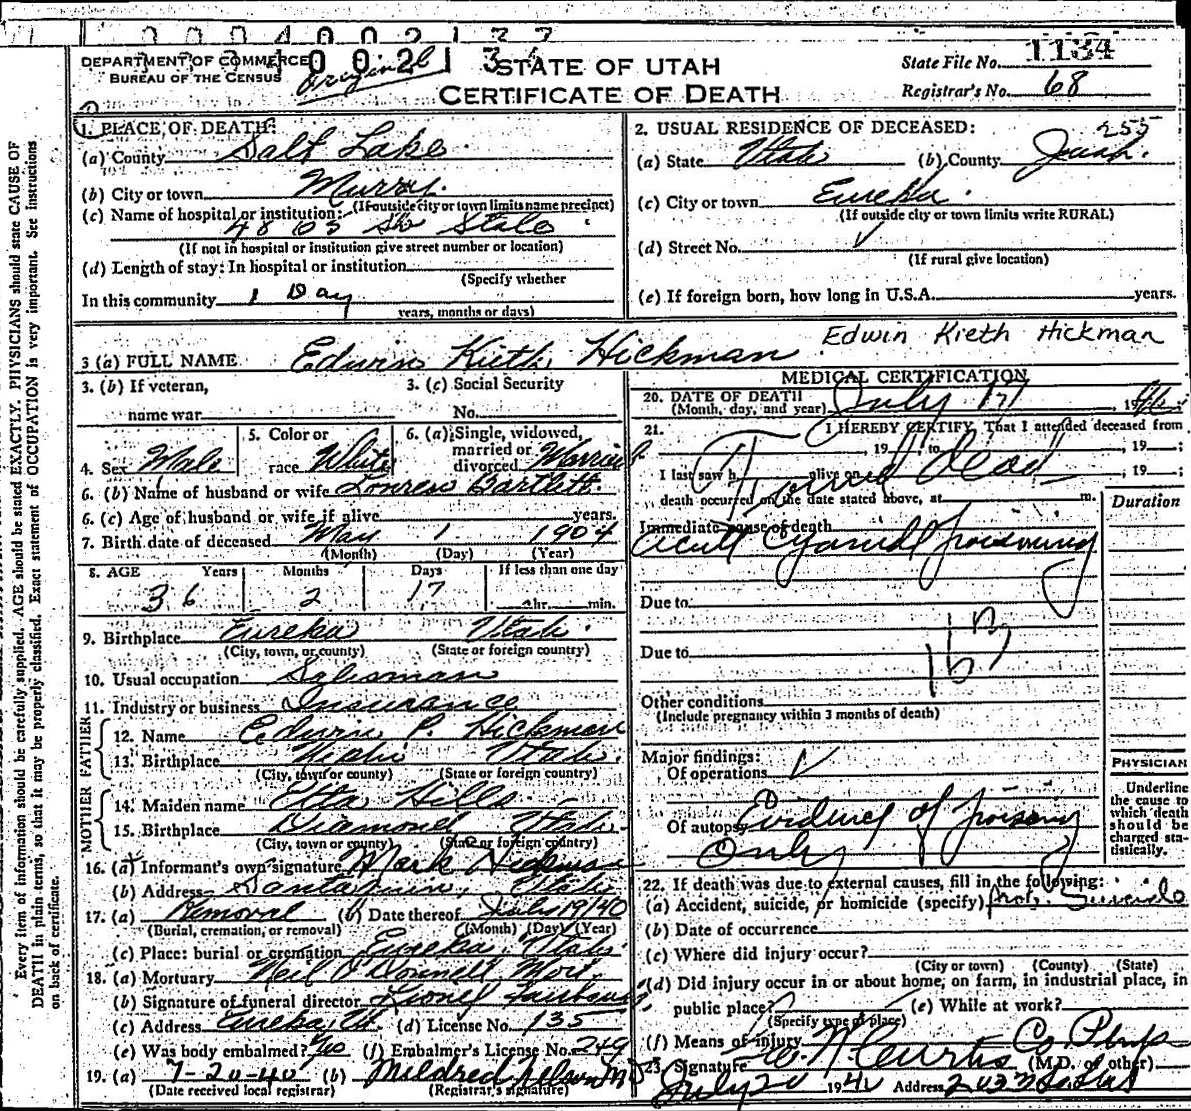 0004002137
DEPARTMENT OF COMMERCE
BUREAU OF THE CENSUS
Original
STATE OF UTAH
CERTIFICATE OF DEATH
State File No. 1134
Registrar's No. 68
1. PLACE OF DEATH:
(a) County Salt Lake
(b) City or town Murray
(If outside city or town limits name precinct)
(c) Name of hospital or institution:
4863 So State
(If not in hospital or institution give street number or location)
(d) Length of stay: In hospital or institution
(Specify whether
In this community 1 Day
years, months or days)
2. USUAL RESIDENCE OF DECEASED:
255
(a) State Utah (b) County Juab
(c) City or town Eureka
(If outside city or town limits write RURAL)
(d) Street No.
(If rural give location)
(e) If foreign born, how long in U.S.A. years.
3 (a) FULL NAME Edwin Kieth Hickman Edwin Kieth Hickman
3. (b) If veteran,
name war
3. (c) Social Security
No.
4. Sex Male
5. Color or
race White
6. (a) Single, widowed,
married or
divorced Married
6. (b) Name of husband or wife Bartlett
6. (c) Age of husband or wife if alive years.
7. Birth date of deceased May 1 1904
(Month) (Day) (Year)
8. AGE Years Months Days If less than one day
36 2 17 hr. min.
9. Birthplace Eureka Utah
(City, town, or county) (State or foreign country)
10. Usual occupation Salesman
11. Industry or business Insurance
FATHER
12. Name Edwin P. Hickman
13. Birthplace Utah
(City, town or county) (State or foreign country)
MOTHER
14. Maiden name Etta Hills
15. Birthplace Diamond Utah
(City, town or county) (State or foreign country)
16. (a) Informant's own signature Mark Hickman
(b) Address Santaquin, Utah
17. (a) Removal (b) Date thereof July 19/40
(Burial, cremation, or removal) (Month) (Day) (Year)
(c) Place: burial or cremation Eureka, Utah
18. (a) Mortuary Neil O'Donnell Mort.
(b) Signature of funeral director Lionel
(c) Address Eureka, Ut. (d) License No. 135
(e) Was body embalmed? Yes (f) Embalmer's License No. 249
19. (a) 7-20-40 (b) Mildred Nelson MD
(Date received local registrar) (Registrar's signature)
MEDICAL CERTIFICATION
20. DATE OF DEATH
(Month, day, and year) July 17, 1940;
21. I HEREBY CERTIFY, That I attended deceased from
, 19 , to , 19 ;
I last saw h alive on , 19 ;
Found dead
death occurred on the date stated above, at m.
Duration
Immediate cause of death
Acute Cyanide poisoning
Due to
Due to
Other conditions
(Include pregnancy within 3 months of death)
Major findings:
Of operations
Of autopsy Evidence of poisoning
Only
PHYSICIAN
Underline
the cause to
which death
should be
charged sta-
tistically.
22. If death was due to external causes, fill in the following:
(a) Accident, suicide, or homicide (specify) prob. Suicide
(b) Date of occurrence
(c) Where did injury occur?
(City or town) (County) (State)
(d) Did injury occur in or about home, on farm, in industrial place, in
public place? (e) While at work?
(Specify type of place)
(f) Means of injury
23. Signature W. N. Curtis Co Phys
(M.D. or other)
July 20 1940 Address
Every item of information should be carefully supplied. AGE should be stated EXACTLY. PHYSICIANS should state CAUSE OF
DEATH in plain terms, so that it may be properly classified. Exact statement of OCCUPATION is very important. See instructions
on back of certificate.